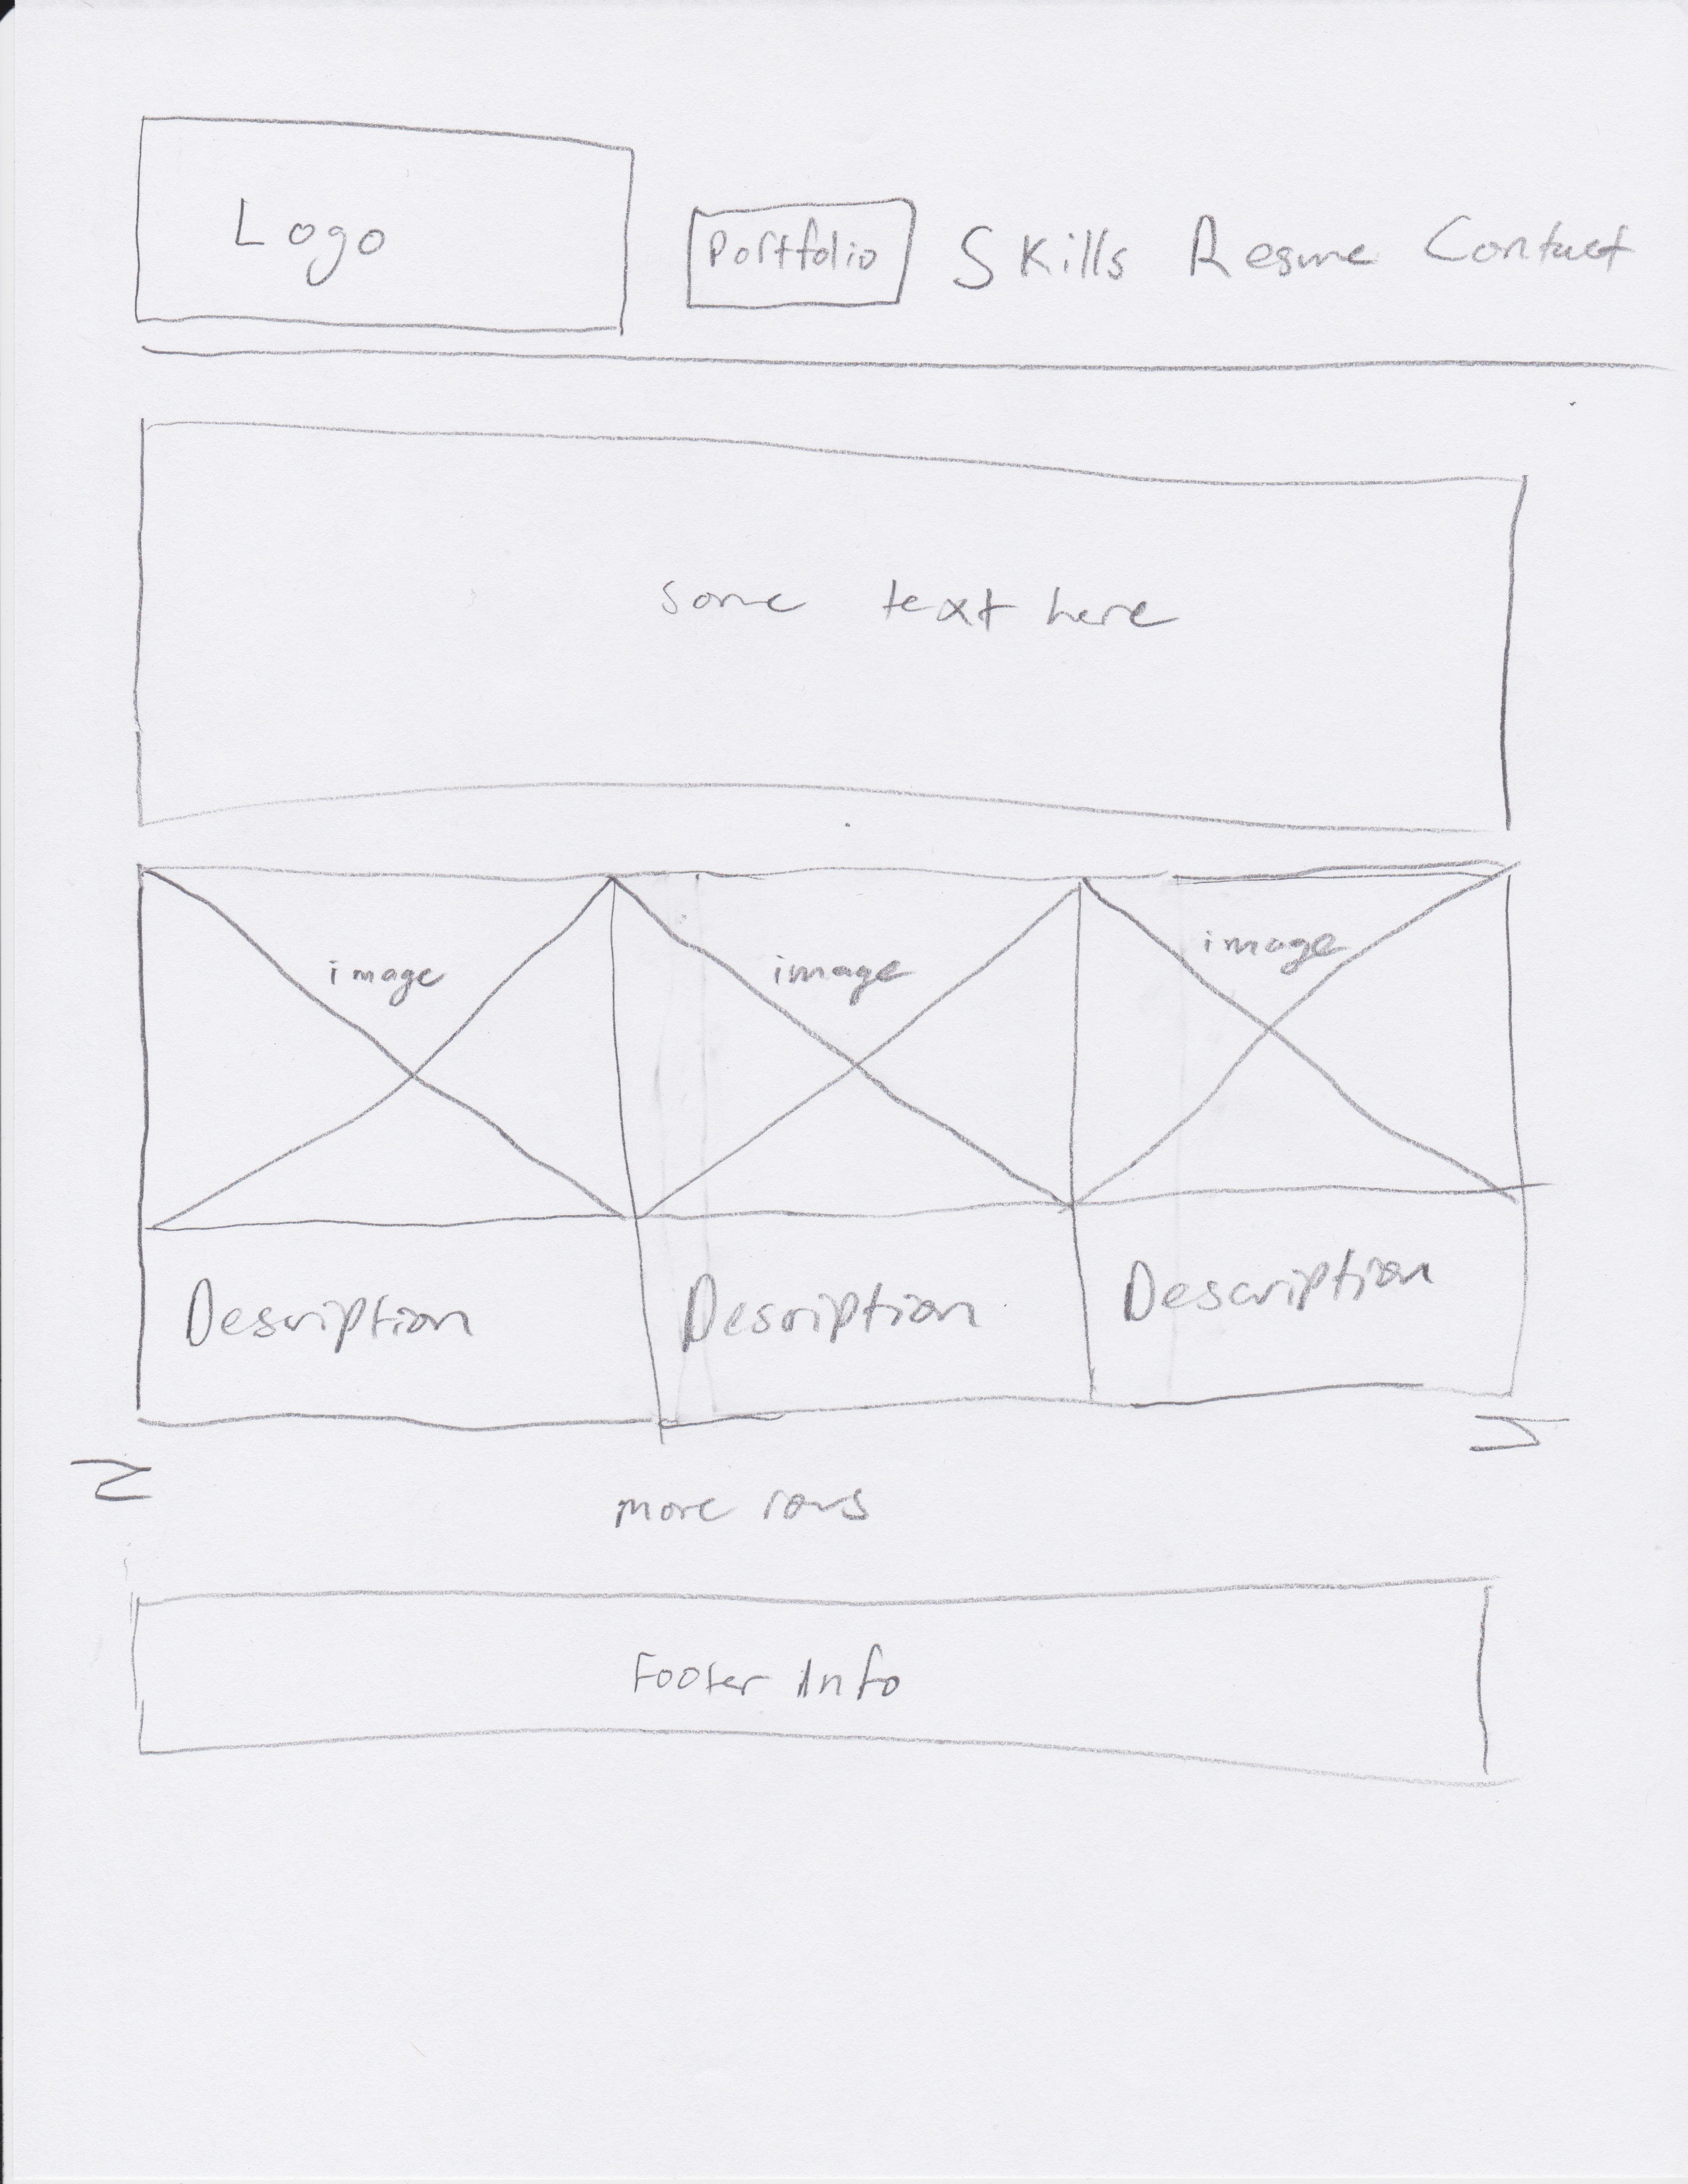 Logo
Portfolio Skills Resume Contact
some text here
image image image
Description Description Description
more rows
Footer Info